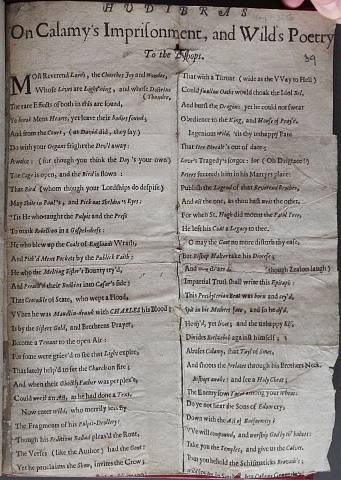 HUDIBRAS
On Calamy's Imprisonment, and Wild's Poetry
To the Bishops.
39
MOst Reverend Lords, the Churches Joy and Wonder,
Whose Lives are Lightning, and whose Doctrine
(Thunder,
The rare Effects of both in this are found,
Ye break Mens Hearts, yet leave their Bodies sound;
And from the Court, (as David did, they say)
Do with your Organs fright the Devil away:
Awake: (for though you think the Day 's your own)
The Cage is open, and the Bird is flown:
That Bird (whom though your Lordships do despise)
May Shite in Paul's, and Pick out Sheldon's Eyes:
'Tis He who taught the Pulpit and the Press
To mask Rebellion in a Gospel-dress:
He who blew up the Coals of England's Wrath,
And Pick'd Mens Pockets by the Publick Faith;
He who the Melting Sister's Bounty try'd,
And their Bodkins into Caesar's Side;
That Crocodile of State, who wept a Flood,
VVhen he was Maudlin-drunk with CHARLES his Blood;
Is by the Sister Gold, and Brethrens Prayer,
Become a Tenant to the open Air:
For some were griev'd to see that Light expire,
That lately help'd to set the Church on fire;
And when their Ghostly Father was perplex'd,
Could wrest an Act, as he had done a Text.
Now enter Wild, who merrily lets fly
The Fragments of his Pulpit-Drollery;
Though his Seditious Ballad pleas'd the Rout,
The Verses (like the Author) had the Gout:
Yet he proclaims the Show, invites the Crowd;
That with a Throat (wide as the VVay to Hell)
Could swallow Oaths would choak the Idol Bel,
And burst the Dragon: yet he could not swear
Obedience to the King, and House of Pray'r.
Ingenious Wild, 'tis thy unhappy Fate
That Iter Boreale's out of date;
Love's Tragedy's forgot: for (Oh Disgrace!)
Peters succeeds him in his Martyrs place:
Publish the Legend of that Reverend Brother,
And act the one, as thou hast the other.
For when St. Hugh did mount the Fatal Tree,
He left his Coat a Legacy to thee.
O may the Gout no more disturb thy ease,
But Bishop Halter take the Disease;
And (though Zealots laugh)
Impartial Truth shall write this Epitaph:
This Presbyterian Brat was born and cry'd,
Spit in his Mothers Face, and so he dy'd.
He dy'd, yet lives; and the unhappy Elf,
Divides against himself;
Abuses Calamy, that Tail of Smec,
And shoots the Prelate through his Brothers Neck.
Bishops awake; and see a Holy Cheat;
The Enemy sows Tares among your Wheat:
Do ye not hear the Sons of Edom cry,
Down with the Act of Uniformity;
VVe will compound, and worship God by th' halves:
Take you the Temples, and give us the Calves.
Thus you behold the Schismaticks Bravado's;